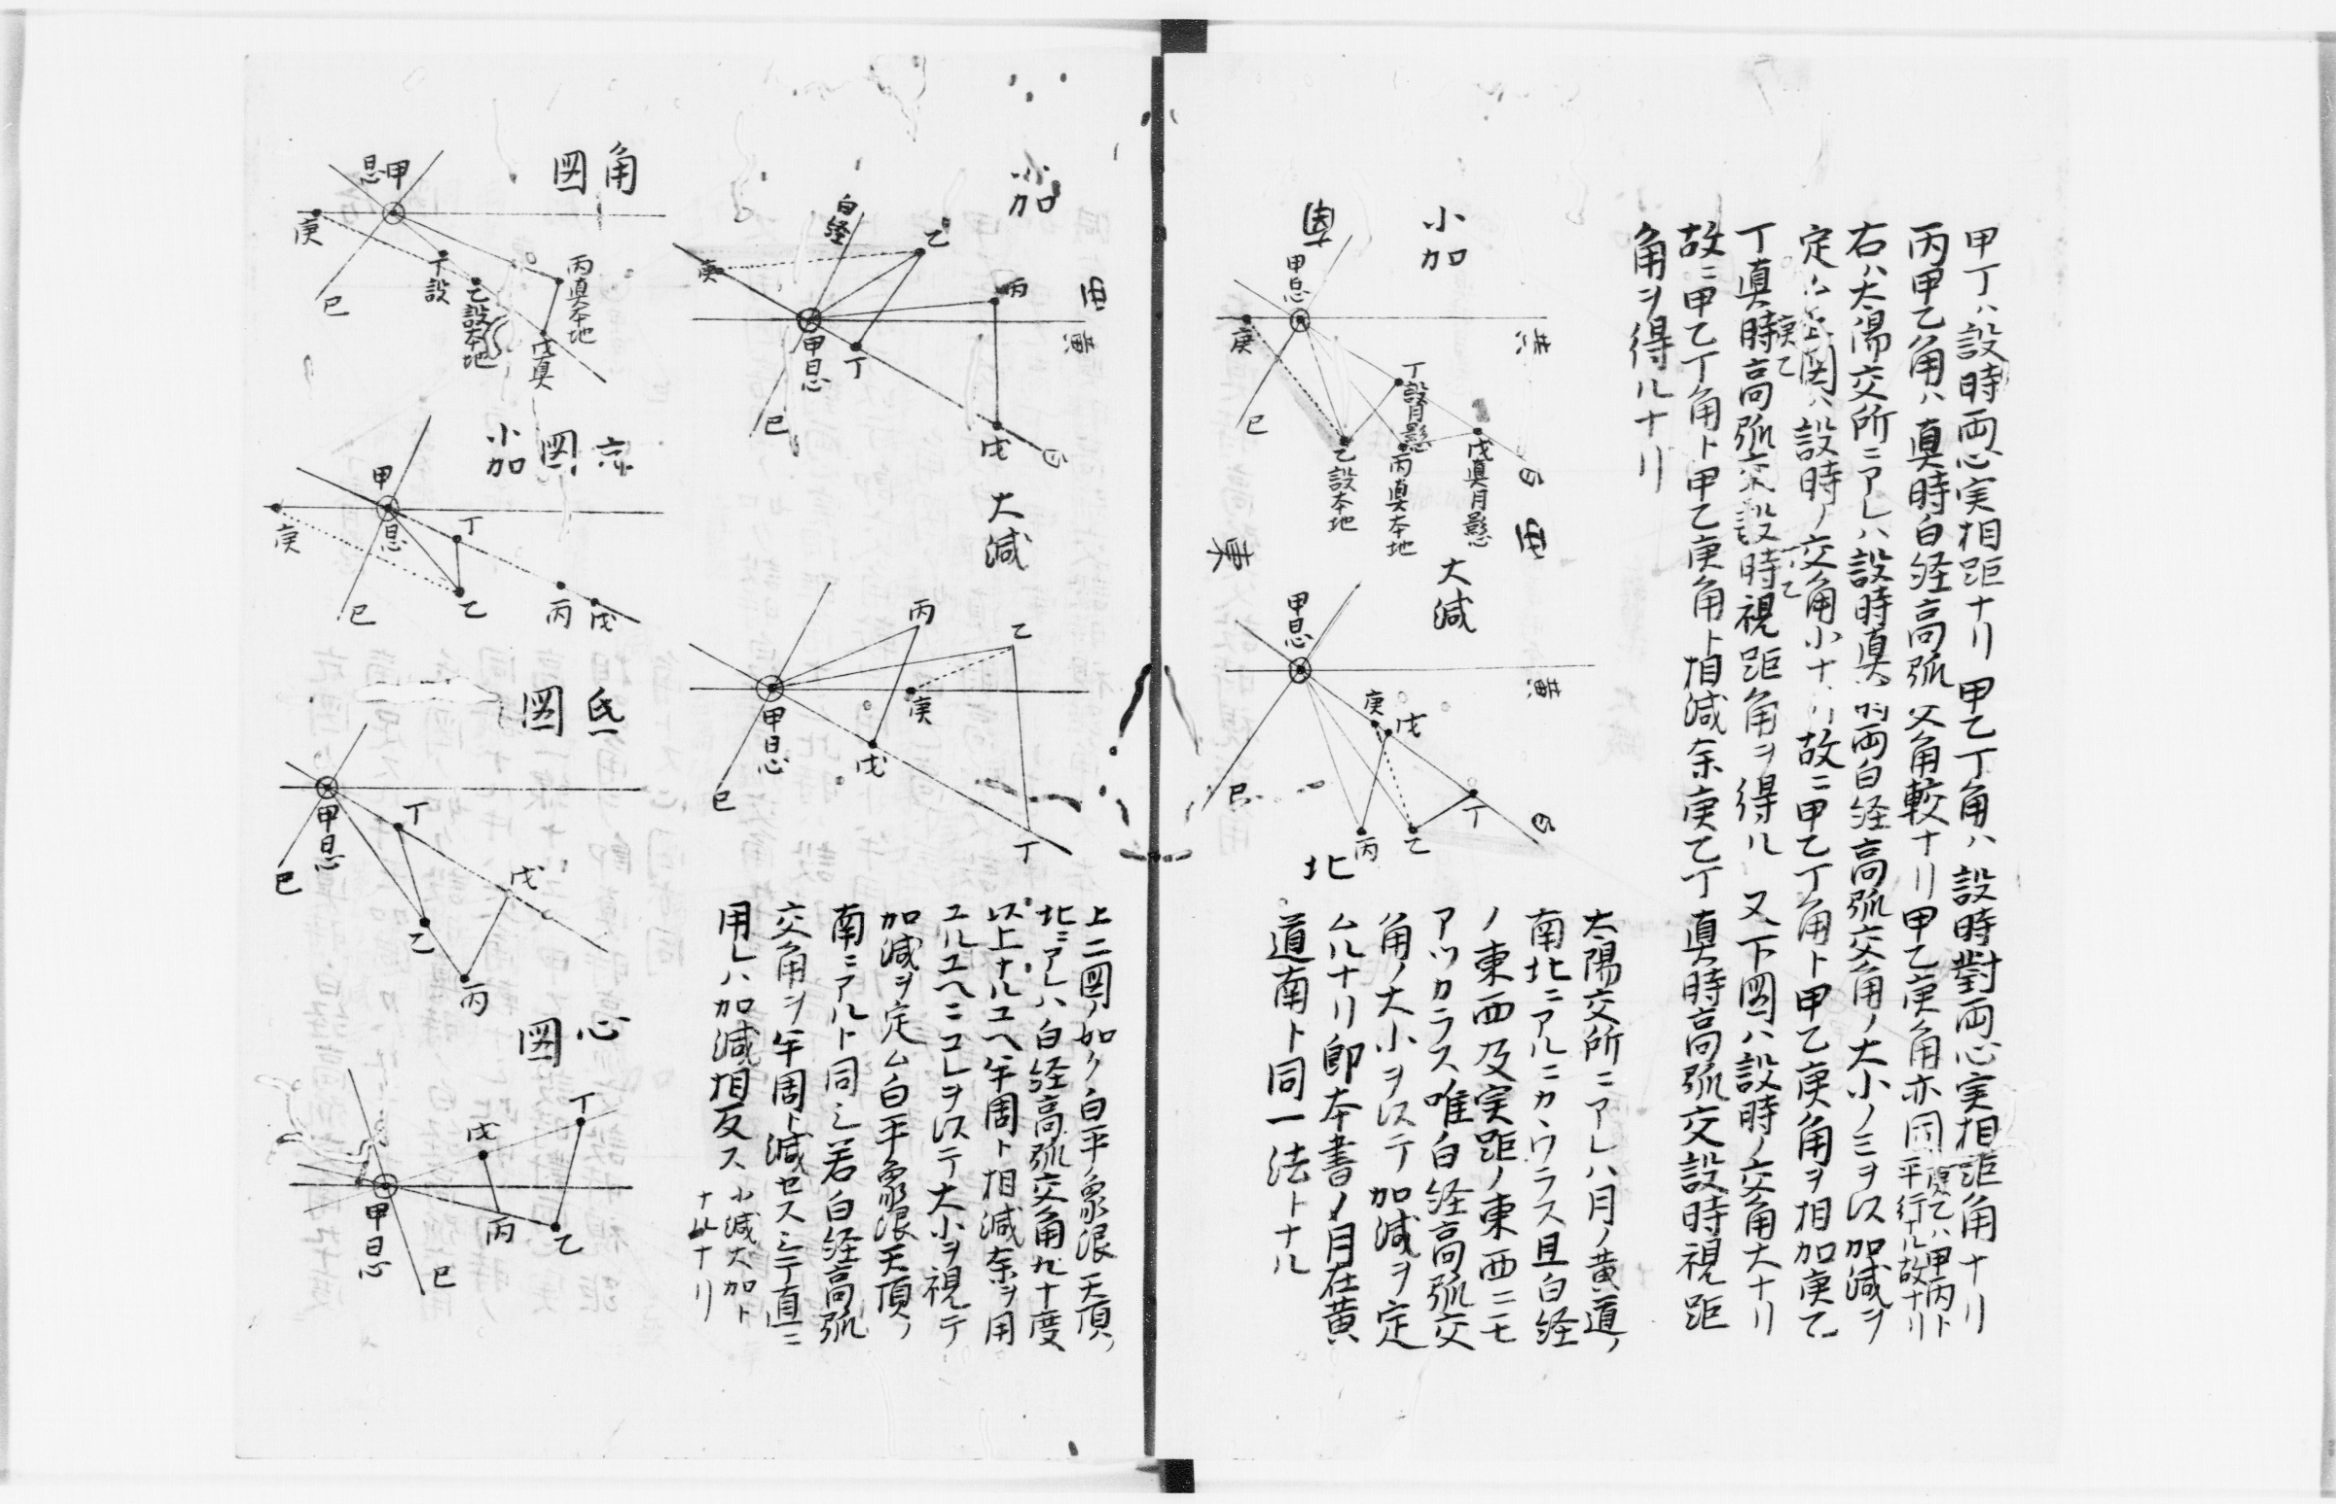 甲丁ハ設時両心実相距ナリ甲乙丁角ハ設時對両心実相距角ナリ
丙甲乙角ハ真時白経高弧交角較ナリ甲乙庚角亦同庚乙ハ甲丙ト平行ナル故ナリ
右ハ太陽交所ニアレハ設時真時両白経高弧交角ノ大小ノミヲ以加減ヲ
定ム 図ハ設時ノ交角小ナリ故ニ甲乙丁角ト甲乙庚角ヲ相加庚乙
丁真時高弧交設時視距角ヲ得ル又下図ハ設時ノ交角大ナリ
故ニ甲乙丁角ト甲乙庚角ト相減余庚乙丁真時高弧交設時視距
角ヲ得ルナリ
小加
甲日心
庚
巳
丁設月影
乙設本地
丙真本地
戊真月影
黄
白
西
東
大減
甲日心
黄
庚
戊
丁
乙
丙
巳
白
北
太陽交所ニアレハ月ノ黄道ノ
南北ニアルニカヽワラス且白経
ノ東西及実距ノ東西ニモ
アツカラス唯白経高弧交
角ノ大小ヲ以テ加減ヲ定
ムルナリ即本書ノ月在黄
道南ト同一法トナル
小加
白経
乙
丙
庚
甲日心
丁
巳
戊
白
西
黄
大減
丙
乙
庚
甲日心
戊
巳
丁
上二図ノ如ク白平象限天頂ノ
北ニアレハ白経高弧交角九十度
以上ナルユヘ半周ト相減余ヲ用
ユルユヘニコレヲ以テ大小ヲ視テ
加減ヲ定ム白平象限天頂ノ
南ニアルト同シ若白経高弧
交角ヲ半周ト減セスシテ直ニ
用レハ加減相反ス小減大加トナルナリ
角図
甲日心
庚
巳
丁設
乙設本地
丙真本地
戊真
亢図
小加
甲日心
庚
丁
巳
乙
丙
戊
氐図
甲日心
丁
巳
戊
乙
丙
心図
丁
戊
甲日心
丙
乙
巳